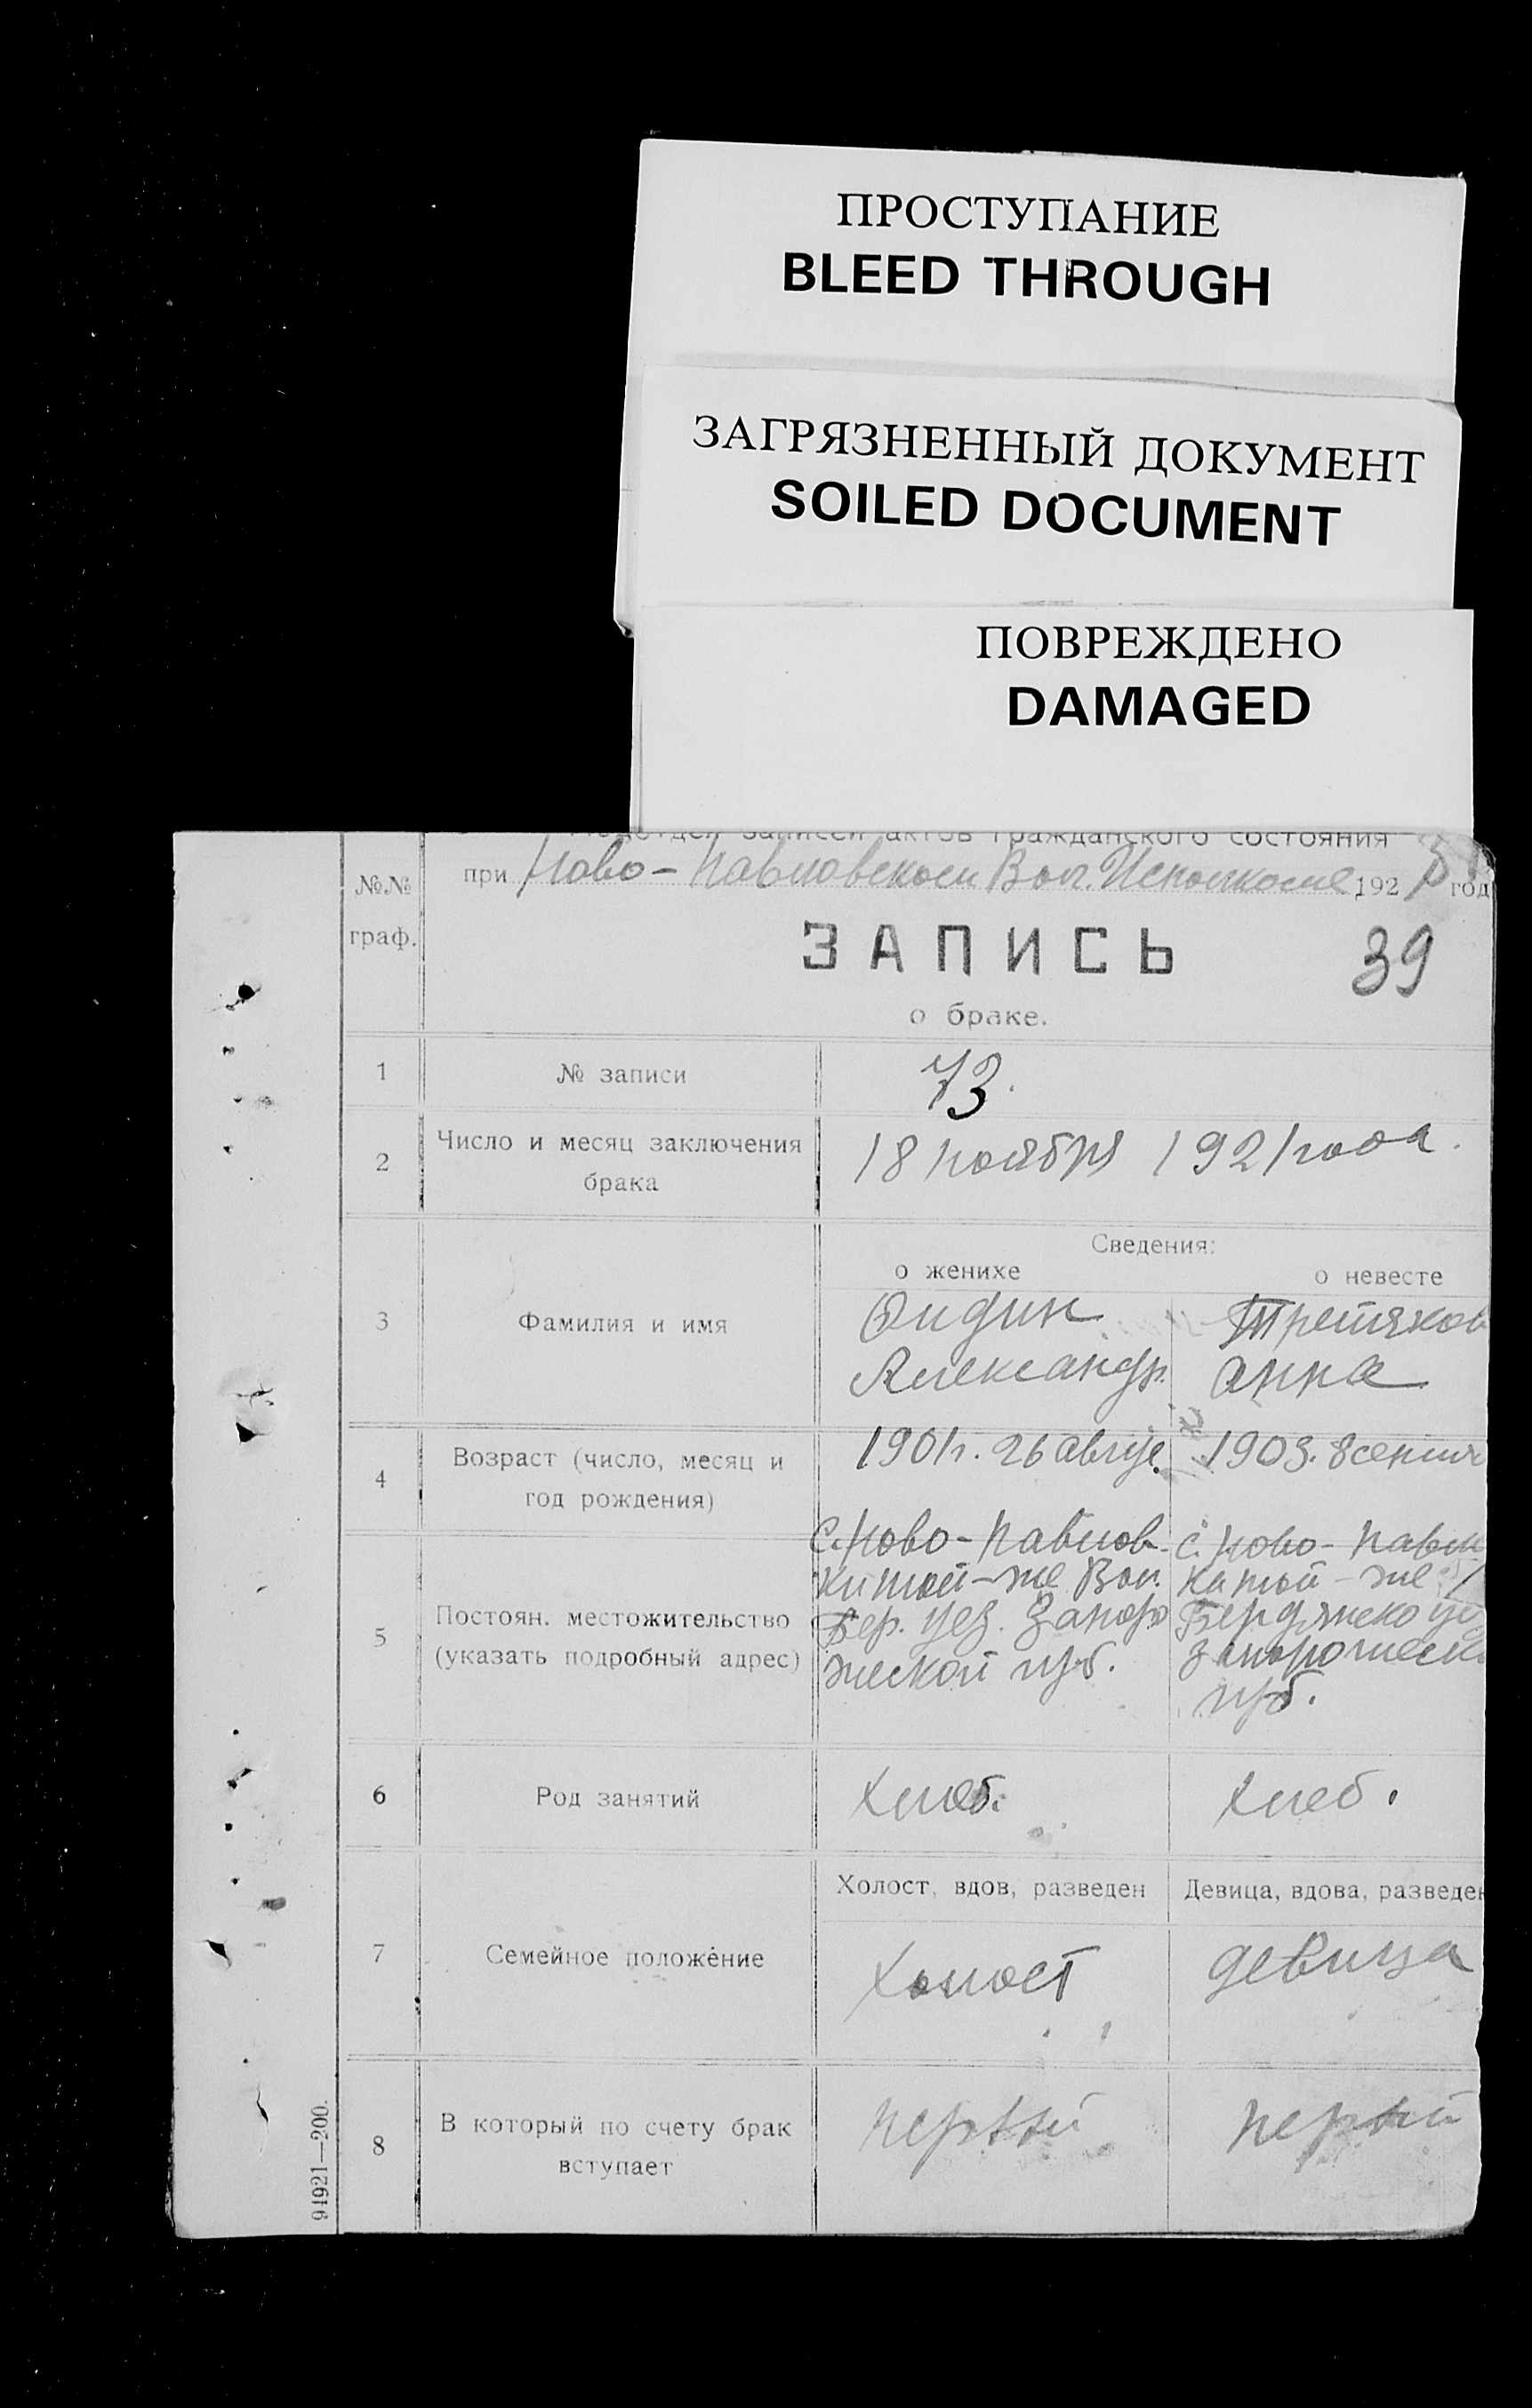 ПРОСТУПАНИЕ
BLEED THROUGH
ЗАГРЯЗНЕННЫЙ ДОКУМЕНТ
SOILED DOCUMENT
ПОВРЕЖДЕНО
DAMAGED
записей актов гражданского состояния
№№ граф.
при Ново-Павловском Вол. Исполкоме 192 год
ЗАПИСЬ
39
о браке.
1 № записи 73.
2 Число и месяц заключения брака
18 ноября 1921 года.
Сведения:
о женихе о невесте
3 Фамилия и имя
Третяков
Александр. Анна
4 Возраст (число, месяц и год рождения)
1901г. 26 авгус. 1903. 8 сентя
5 Постоян. местожительство (указать подробный адрес)
С. Ново-Павлов- С. Ново-Павл
ки той-же Вол. ка той-же
Бер. уез. Запоро Бердянско уез
жской губ. Запорожеск
губ.
6 Род занятий
Хлеб. Хлеб.
Холост, вдов, разведен Девица, вдова, разведен
7 Семейное положение
Холост девица
8 В который по счету брак вступает
первый первый
94921—200.